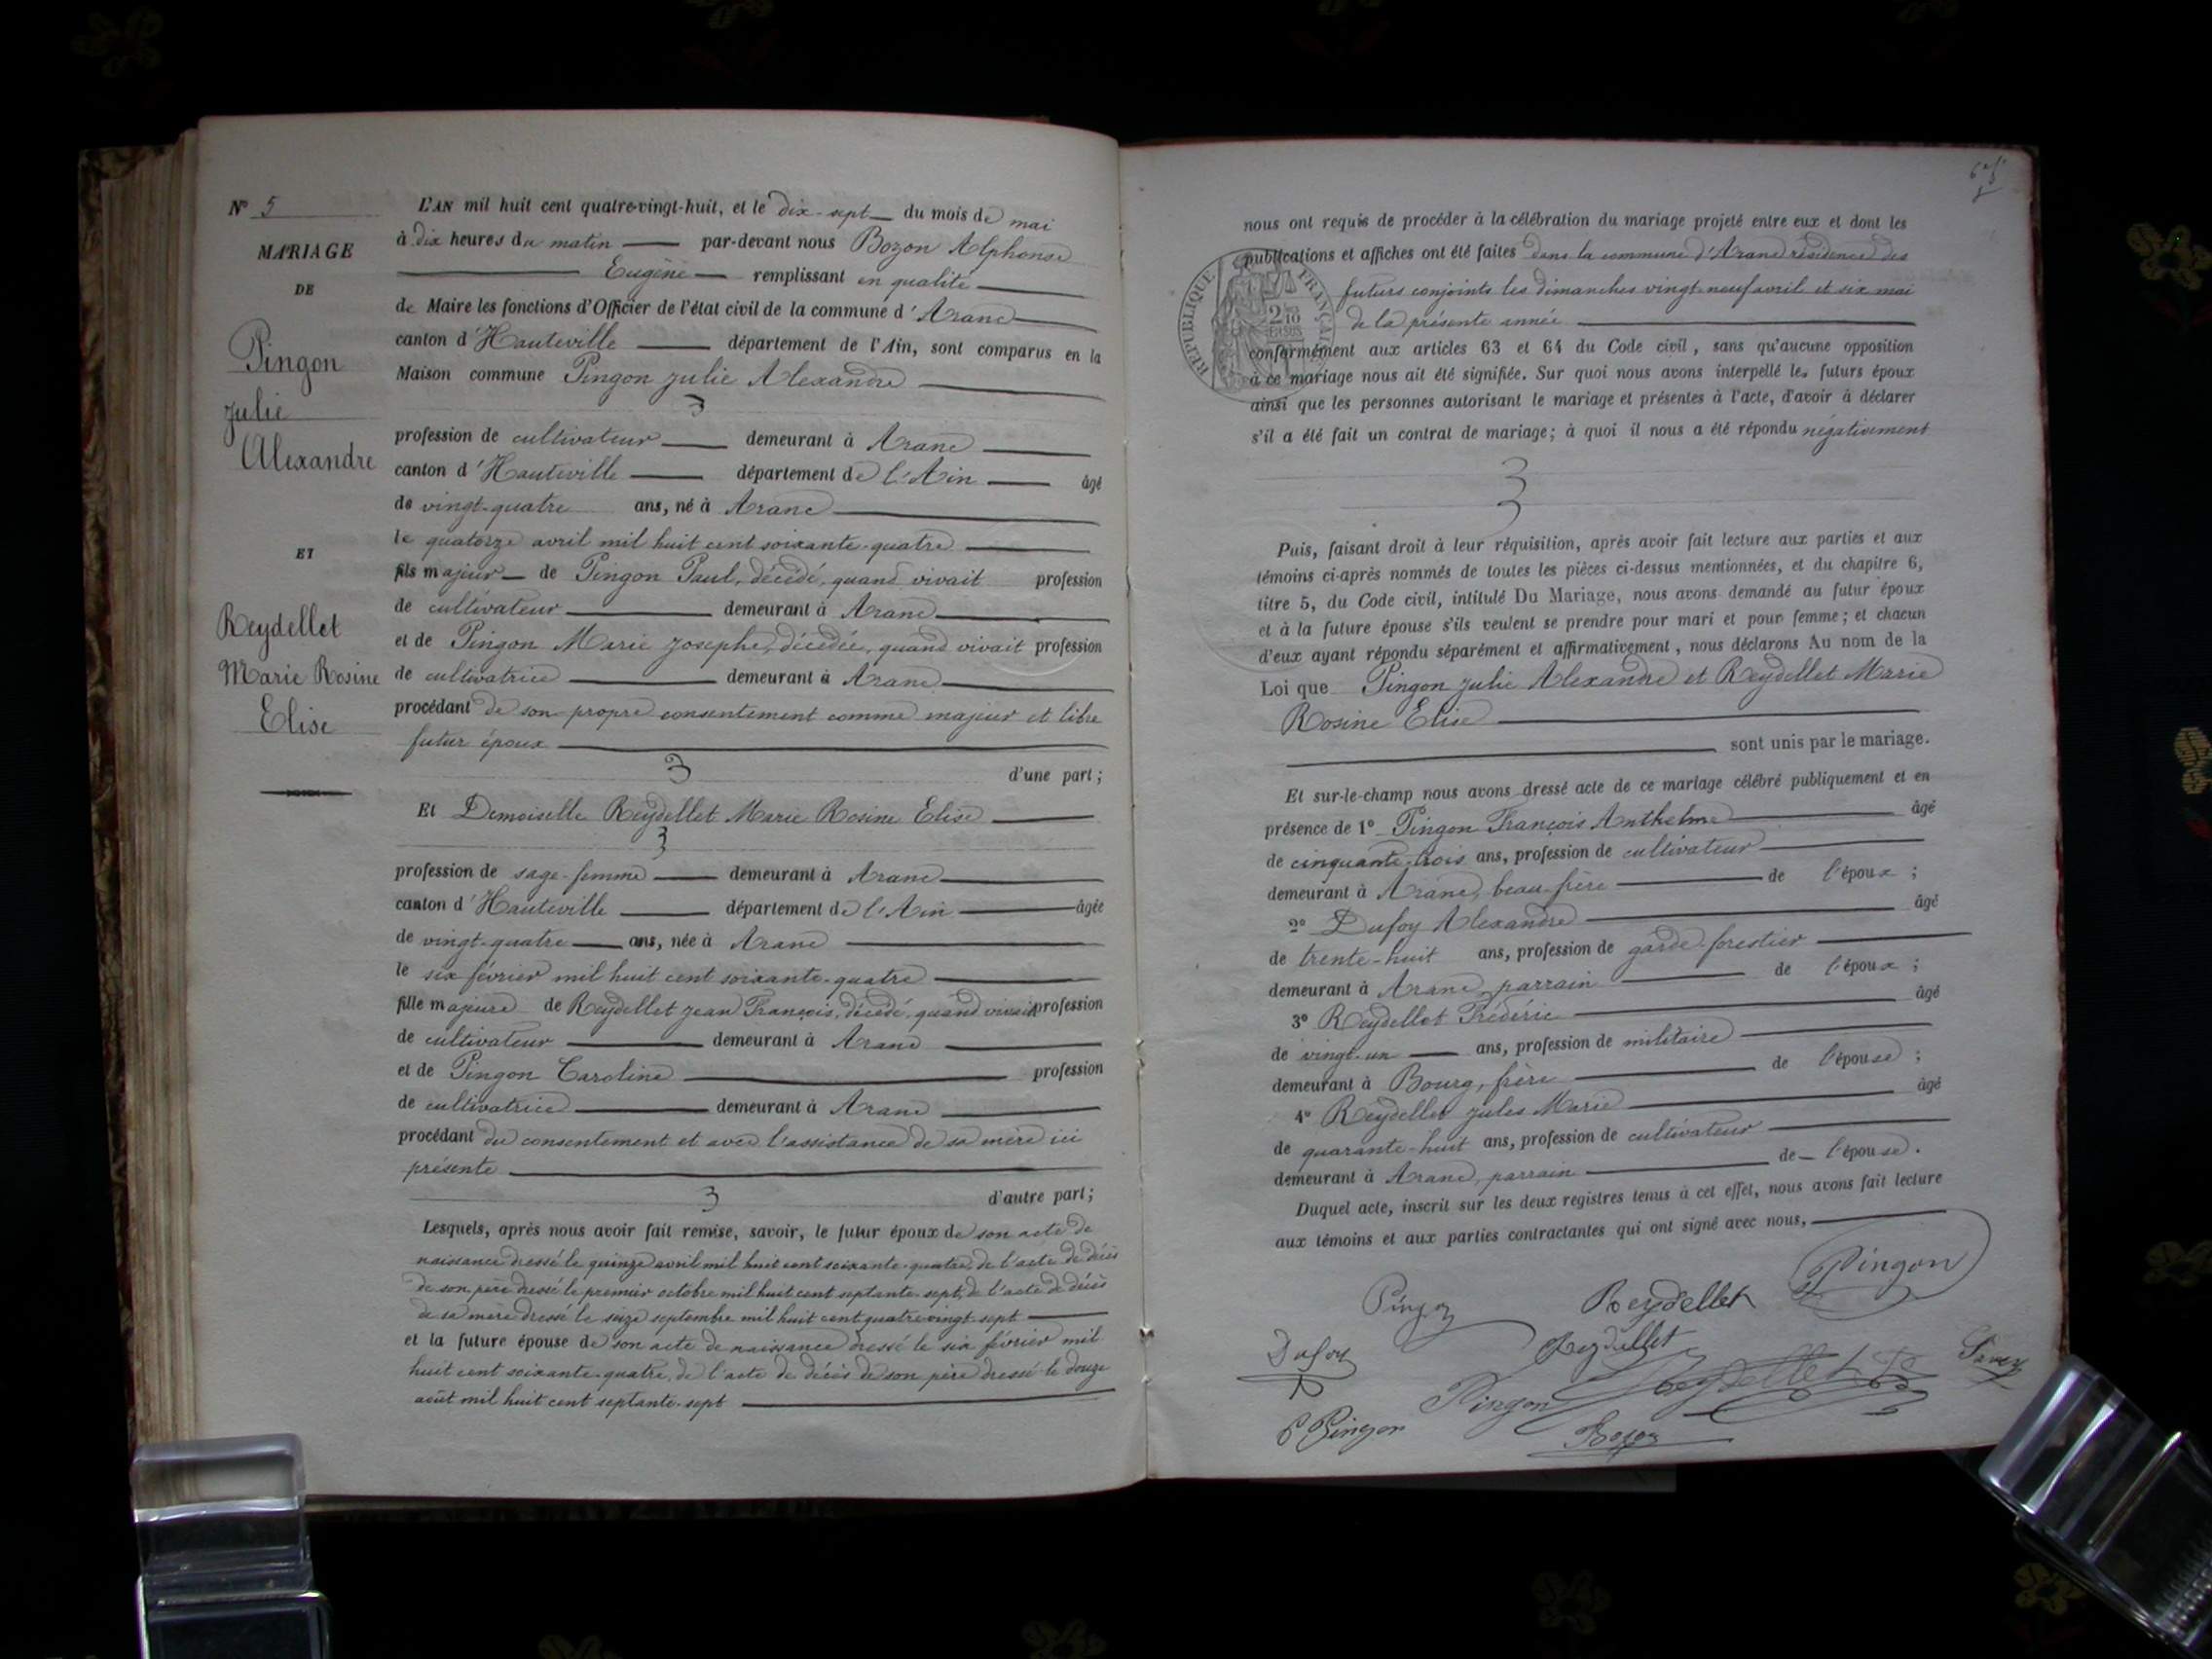 N° 5
MARIAGE
DE
Pingon
Julie
Alexandre
ET
Reydellet
Marie Rosine
Elise
L'AN mil huit cent quatre-vingt-huit, et le dix-sept du mois de mai
à dix heures du matin par-devant nous Bozon Alphonse
Eugène remplissant en qualité
de Maire les fonctions d'Officier de l'état civil de la commune d'Aranc
canton d'Hauteville département de l'Ain, sont comparus en la
Maison commune Pingon Julie Alexandre
profession de cultivateur demeurant à Aranc
canton d'Hauteville département de l'Ain âgé
de vingt-quatre ans, né à Aranc
le quatorze avril mil huit cent soixante-quatre
fils majeur de Pingon Paul, décédé, quand vivait profession
de cultivateur demeurant à Aranc
et de Pingon Marie Josephe, décédée, quand vivait profession
de cultivatrice demeurant à Aranc
procédant de son propre consentement comme majeur et libre
futur époux
d'une part;
Et Demoiselle Reydellet Marie Rosine Elise
profession de sage-femme demeurant à Aranc
canton d'Hauteville département de l'Ain âgée
de vingt-quatre ans, née à Aranc
le six février mil huit cent soixante-quatre
fille majeure de Reydellet Jean François, décédé, quand vivait profession
de cultivateur demeurant à Aranc
et de Pingon Caroline profession
de cultivatrice demeurant à Aranc
procédant du consentement et avec l'assistance de sa mère ici
présente
d'autre part;
Lesquels, après nous avoir fait remise, savoir, le futur époux de son acte de
naissance dressé le quinze avril mil huit cent soixante-quatre, de l'acte de décès
de son père dressé le premier octobre mil huit cent septante-sept, de l'acte de décès
de sa mère dressé le seize septembre mil huit cent quatre-vingt-sept
et la future épouse de son acte de naissance dressé le six février mil
huit cent soixante-quatre, de l'acte de décès de son père dressé le douze
août mil huit cent septante-sept
nous ont requis de procéder à la célébration du mariage projeté entre eux et dont les
publications et affiches ont été faites dans la commune d'Aranc résidence des
futurs conjoints les dimanches vingt-neuf avril et six mai
de la présente année
RÉPUBLIQUE FRANÇAISE
2/10 EN SUS
conformément aux articles 63 et 64 du Code civil, sans qu'aucune opposition
à ce mariage nous ait été signifiée. Sur quoi nous avons interpellé les futurs époux
ainsi que les personnes autorisant le mariage et présentes à l'acte, d'avoir à déclarer
s'il a été fait un contrat de mariage; à quoi il nous a été répondu négativement
Puis, faisant droit à leur réquisition, après avoir fait lecture aux parties et aux
témoins ci-après nommés de toutes les pièces ci-dessus mentionnées, et du chapitre 6,
titre 5, du Code civil, intitulé Du Mariage, nous avons demandé au futur époux
et à la future épouse s'ils veulent se prendre pour mari et pour femme; et chacun
d'eux ayant répondu séparément et affirmativement, nous déclarons Au nom de la
Loi que Pingon Julie Alexandre et Reydellet Marie
Rosine Elise
sont unis par le mariage.
Et sur-le-champ nous avons dressé acte de ce mariage célébré publiquement et en
présence de 1° Pingon François Anthelme âgé
de cinquante-trois ans, profession de cultivateur
demeurant à Aranc, beau-frère de l'époux;
2° Dufoy Alexandre âgé
de trente-huit ans, profession de garde-forestier
demeurant à Aranc, parrain de l'époux;
3° Reydellet Frédéric âgé
de vingt-un ans, profession de militaire
demeurant à Bourg, frère de l'épouse;
4° Reydellet Jules Marie âgé
de quarante-huit ans, profession de cultivateur
demeurant à Aranc, parrain de l'épouse.
Duquel acte, inscrit sur les deux registres tenus à cet effet, nous avons fait lecture
aux témoins et aux parties contractantes qui ont signé avec nous,
Pingon
Pingon Reydellet
Dufoy Reydellet
Pingon Reydellet
P Pingon Bozon